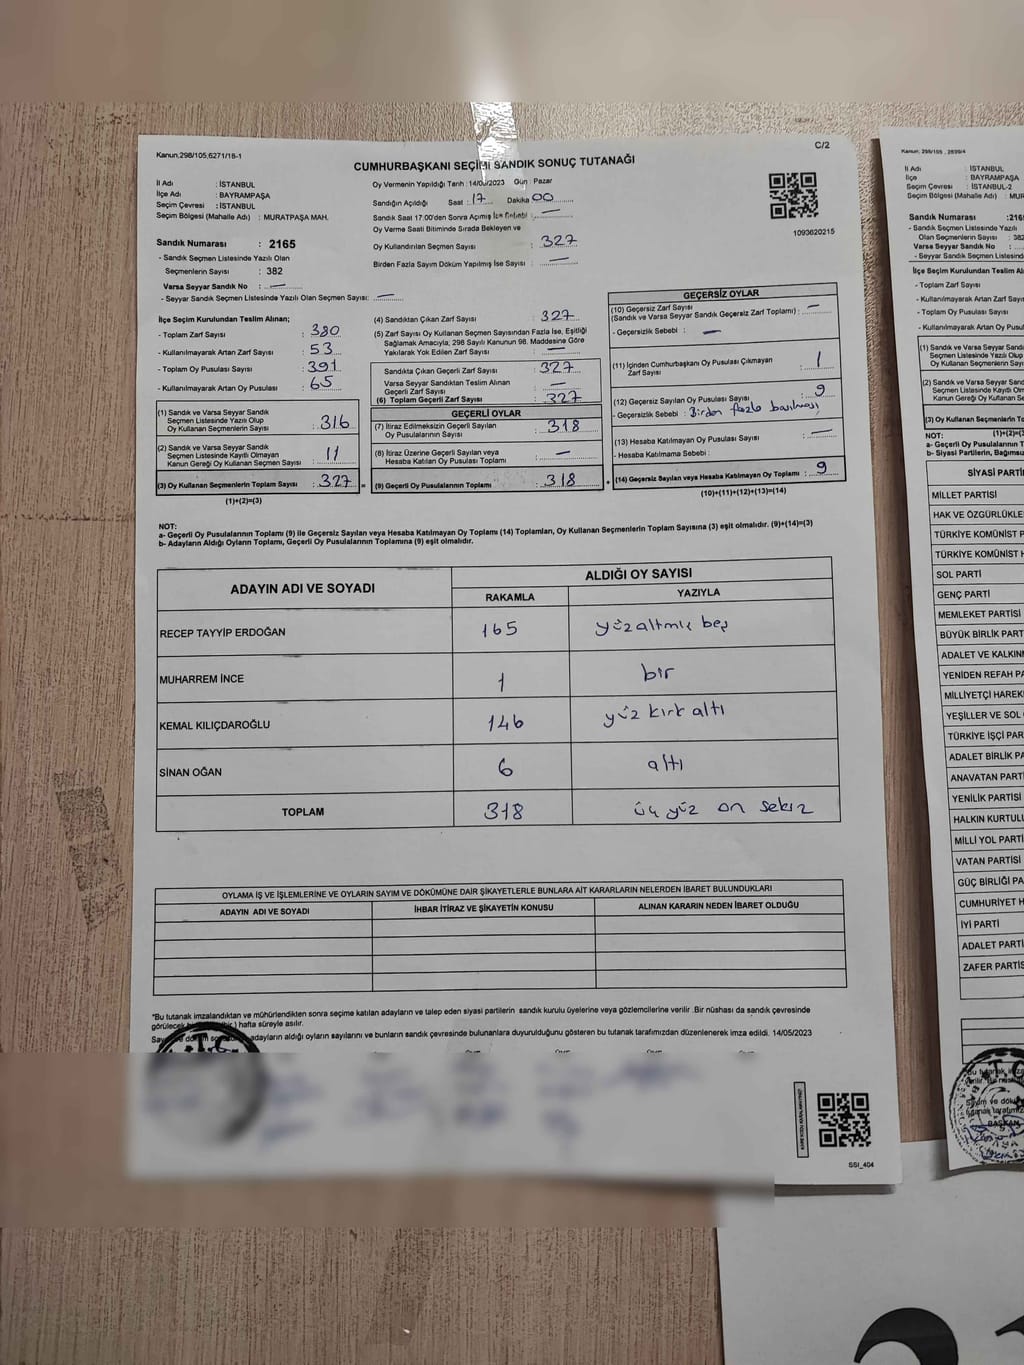 Kanun;298/105;6271/16-1
C/2
CUMHURBAŞKANI SEÇİMİ SANDIK SONUÇ TUTANAĞI
İl Adı : İSTANBUL
İlçe Adı : BAYRAMPAŞA
Seçim Çevresi : İSTANBUL
Seçim Bölgesi (Mahalle Adı) : MURATPAŞA MAH.
Oy Vermenin Yapıldığı Tarih : 14/05/2023 Gün : Pazar
Sandığın Açıldığı Saat : 17 Dakika 00
Sandık Saat 17.00'den Sonra Açılmış İse Sebebi : —
Oy Verme Saati Bitiminde Sırada Bekleyen ve
Oy Kullandırılan Seçmen Sayısı : 327
Birden Fazla Sayım Döküm Yapılmış İse Sayısı : —
1093620215
Sandık Numarası : 2165
- Sandık Seçmen Listesinde Yazılı Olan
Seçmenlerin Sayısı : 382
Varsa Seyyar Sandık No : —
- Seyyar Sandık Seçmen Listesinde Yazılı Olan Seçmen Sayısı: —
İlçe Seçim Kurulundan Teslim Alınan;
- Toplam Zarf Sayısı : 380
- Kullanılmayarak Artan Zarf Sayısı : 53
- Toplam Oy Pusulası Sayısı : 391
- Kullanılmayarak Artan Oy Pusulası : 65
(1) Sandık ve Varsa Seyyar Sandık
Seçmen Listesinde Yazılı Olup
Oy Kullanan Seçmenlerin Sayısı : 316
(2) Sandık ve Varsa Seyyar Sandık
Seçmen Listesinde Kayıtlı Olmayan
Kanun Gereği Oy Kullanan Seçmen Sayısı : 11
(3) Oy Kullanan Seçmenlerin Toplam Sayısı : 327 =
(1)+(2)=(3)
(4) Sandıktan Çıkan Zarf Sayısı : 327
(5) Zarf Sayısı Oy Kullanan Seçmen Sayısından Fazla İse, Eşitliği
Sağlamak Amacıyla; 298 Sayılı Kanunun 98. Maddesine Göre
Yakılarak Yok Edilen Zarf Sayısı : —
Sandıkta Çıkan Geçerli Zarf Sayısı : 327
Varsa Seyyar Sandıktan Teslim Alınan
Geçerli Zarf Sayısı : —
(6) Toplam Geçerli Zarf Sayısı : 327
GEÇERLİ OYLAR
(7) İtiraz Edilmeksizin Geçerli Sayılan
Oy Pusulalarının Sayısı : 318
(8) İtiraz Üzerine Geçerli Sayılan veya
Hesaba Katılan Oy Pusulası Toplamı : —
(9) Geçerli Oy Pusulalarının Toplamı : 318 +
GEÇERSİZ OYLAR
(10) Geçersiz Zarf Sayısı
(Sandık ve Varsa Seyyar Sandık Geçersiz Zarf Toplamı) : —
- Geçersizlik Sebebi : —
(11) İçinden Cumhurbaşkanı Oy Pusulası Çıkmayan
Zarf Sayısı : 1
(12) Geçersiz Sayılan Oy Pusulası Sayısı : 9
- Geçersizlik Sebebi : Birden fazla basılması
(13) Hesaba Katılmayan Oy Pusulası Sayısı : —
- Hesaba Katılmama Sebebi :
(14) Geçersiz Sayılan veya Hesaba Katılmayan Oy Toplamı : 9
(10)+(11)+(12)+(13)=(14)
NOT:
a- Geçerli Oy Pusulalarının Toplamı (9) ile Geçersiz Sayılan veya Hesaba Katılmayan Oy Toplamı (14) Toplamları, Oy Kullanan Seçmenlerin Toplam Sayısına (3) eşit olmalıdır. (9)+(14)=(3)
b- Adayların Aldığı Oyların Toplamı, Geçerli Oy Pusulalarının Toplamına (9) eşit olmalıdır.
ADAYIN ADI VE SOYADI ALDIĞI OY SAYISI
RAKAMLA YAZIYLA
RECEP TAYYİP ERDOĞAN 165 yüzaltmış beş
MUHARREM İNCE 1 bir
KEMAL KILIÇDAROĞLU 146 yüz kırk altı
SİNAN OĞAN 6 altı
TOPLAM 318 üç yüz on sekiz
OYLAMA İŞ VE İŞLEMLERİNE VE OYLARIN SAYIM VE DÖKÜMÜNE DAİR ŞİKAYETLERLE BUNLARA AİT KARARLARIN NELERDEN İBARET BULUNDUKLARI
ADAYIN ADI VE SOYADI İHBAR İTİRAZ VE ŞİKAYETİN KONUSU ALINAN KARARIN NEDEN İBARET OLDUĞU
"Bu tutanak imzalandıktan ve mühürlendikten sonra seçime katılan adayların ve talep eden siyasi partilerin sandık kurulu üyelerine veya gözlemcilerine verilir .Bir nüshası da sandık çevresinde
görülecek hafta süreyle asılır.
adayların aldığı oyların sayılarını ve bunların sandık çevresinde bulunanlara duyurulduğunu gösteren bu tutanak tarafımızdan düzenlenerek imza edildi. 14/05/2023
T.C.
SSI_404
Kanun; 298/105 , 2839/4
İl Adı : İSTANBUL
İlçe : BAYRAMPAŞA
Seçim Çevresi : İSTANBUL-2
Seçim Bölgesi (Mahalle Adı) :
Sandık Numarası :
- Sandık Seçmen Listesinde Yazılı
Olan Seçmenlerin Sayısı : 382
Varsa Seyyar Sandık No :
- Seyyar Sandık Seçmen Listesinde
İlçe Seçim Kurulundan Teslim
- Toplam Zarf Sayısı
- Kullanılmayarak Artan Zarf
- Toplam Oy Pusulası Sayısı
- Kullanılmayarak Artan Oy
(1) Sandık ve Varsa Seyyar
Seçmen Listesinde Yazılı
Oy Kullanan Seçmenlerin
(2) Sandık ve Varsa Seyyar
Seçmen Listesinde Kayıtlı
Kanun Gereği Oy Kullanan
(3) Oy Kullanan Seçmenlerin
(1)+(2)=
NOT:
a- Geçerli Oy Pusulalarının
b- Siyasi Partilerin,
SİYASİ
MİLLET PARTİSİ
HAK VE ÖZGÜRLÜKLE
TÜRKİYE KOMÜNİST P
TÜRKİYE KOMÜNİST H
SOL PARTİ
GENÇ PARTİ
MEMLEKET PARTİSİ
BÜYÜK BİRLİK
ADALET VE KALKIN
YENİDEN REFAH PA
MİLLİYETÇİ HAREK
YEŞİLLER VE SOL
TÜRKİYE İŞÇİ PAR
ADALET BİRLİK PA
ANAVATAN PARTİ
YENİLİK PARTİSİ
HALKIN KURTUL
MİLLİ YOL PARTİ
VATAN PARTİSİ
GÜÇ BİRLİĞİ PA
CUMHURİYET H
İYİ PARTİ
ADALET PARTİ
ZAFER PARTİS
T.C.